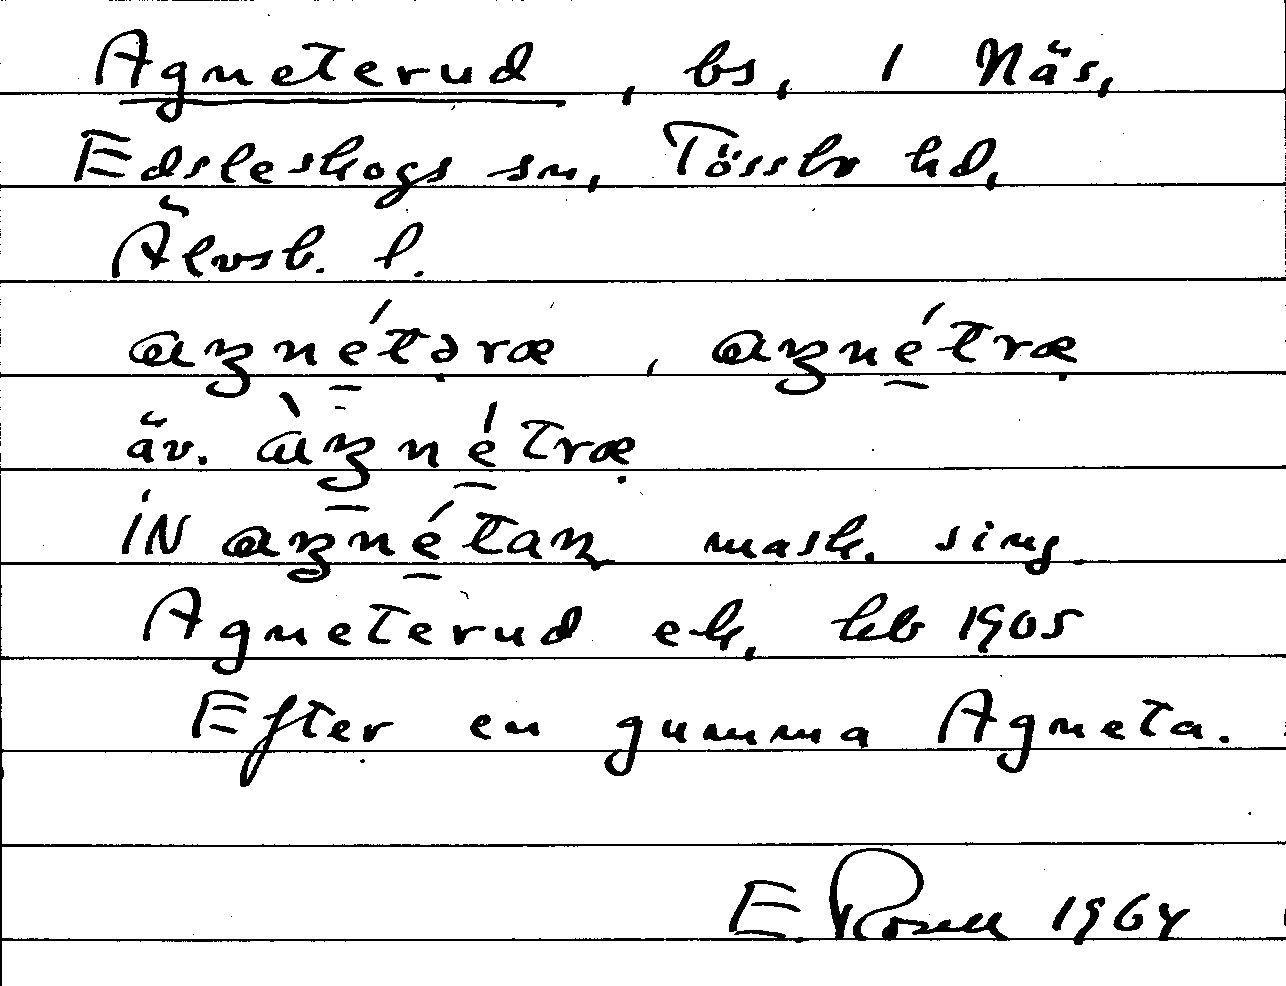 Agneterud, bs, 1 Näs,
Edsleskogs sn, Tössbo hd,
Älvsb. l.
aʒnétəræ, aʒnétræ
äv. àʒnétræ
iN aʒnétaɲ mask. sing.
Agneterud ek, kb 1905
Efter en gumma Agneta.
E. Rosell 1964